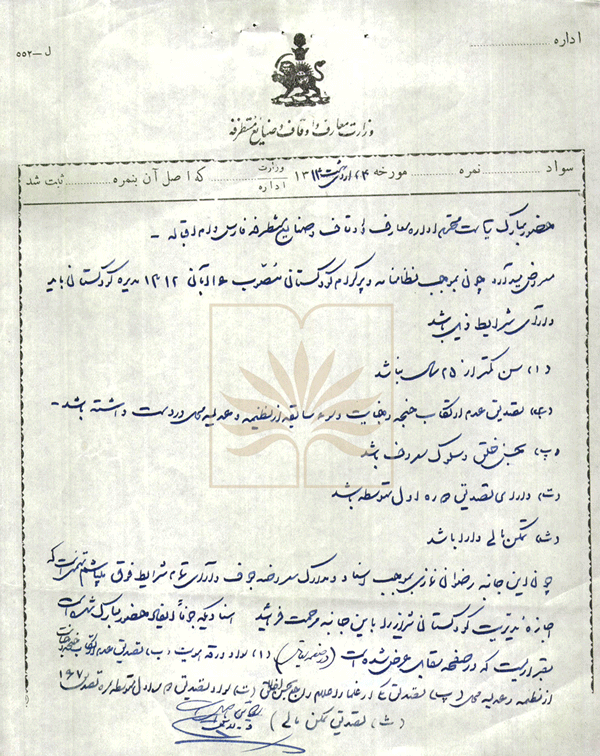 اداره
ل – ۵۵۲
وزارت معارف و اوقاف و صنایع مستظرفه
سواد نمره مورخه ۱۳۱۴ وزارت اداره که اصل آن بنمره ثبت شد
حضور مبارک ریاست محترم اداره معارف و اوقاف و صنایع مستظرفه فارس دام اقباله –
معروض میدارد چون بموجب نظامنامه و پرگرام کودکستانی مصوب ۱۶ آبان ۱۳۱۲ مدیره کودکستانی باید
دارای شرایط ذیل باشد
(۱) سن کمتر از ۲۵ سال نباشد
تصدیق عدم ارتکاب جنحه و جنایت و سوء سابقه از نظمیه و عدلیه محل در دست داشته باشد –
(پ) بحسن خلق و سلوک معروف باشد
(ت) دارای تصدیق دوره اول متوسطه باشد
(ث) تمکن مالی دارا باشد
چون این جانبه رضوانی نمازی بموجب اسناد و مدارک معروضه فوق دارای تمام شرایط فوق میباشم که
اجازه مدیریت کودکستانی شیراز را باین جانبه مرحمت فرمائید اسنادیکه جوفاً ایفاد حضور مبارک شده است
بقراریست که در صفحه مقابل عرض شده است (۱) سواد ورقه هویت (ب) تصدیق عدم ارتکاب جنحه و جنایت
از نظمیه و عدلیه محل (پ) تصدیق (ت) سواد تصدیق دوره اول متوسطه نمره تصدیق ۱۶۷
(ث) تصدیق تمکن مالی)